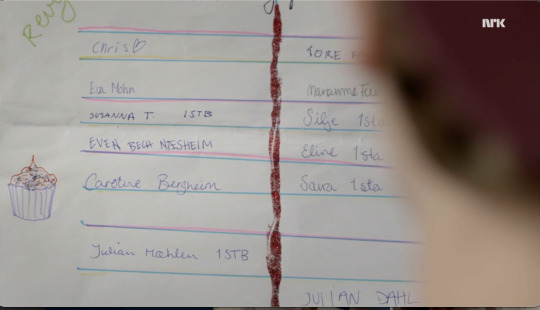 Revy
nrk
Chris♡
TORE
Eva Mohn
Marianne
SUSANNA T. 1STB
Silje 1sta
EVEN BECH NÆSHEIM
Eline 1sta
Caroline Bergheim
Saura 1sta
Julian Mæhlen 1STB
JULIAN DAHL